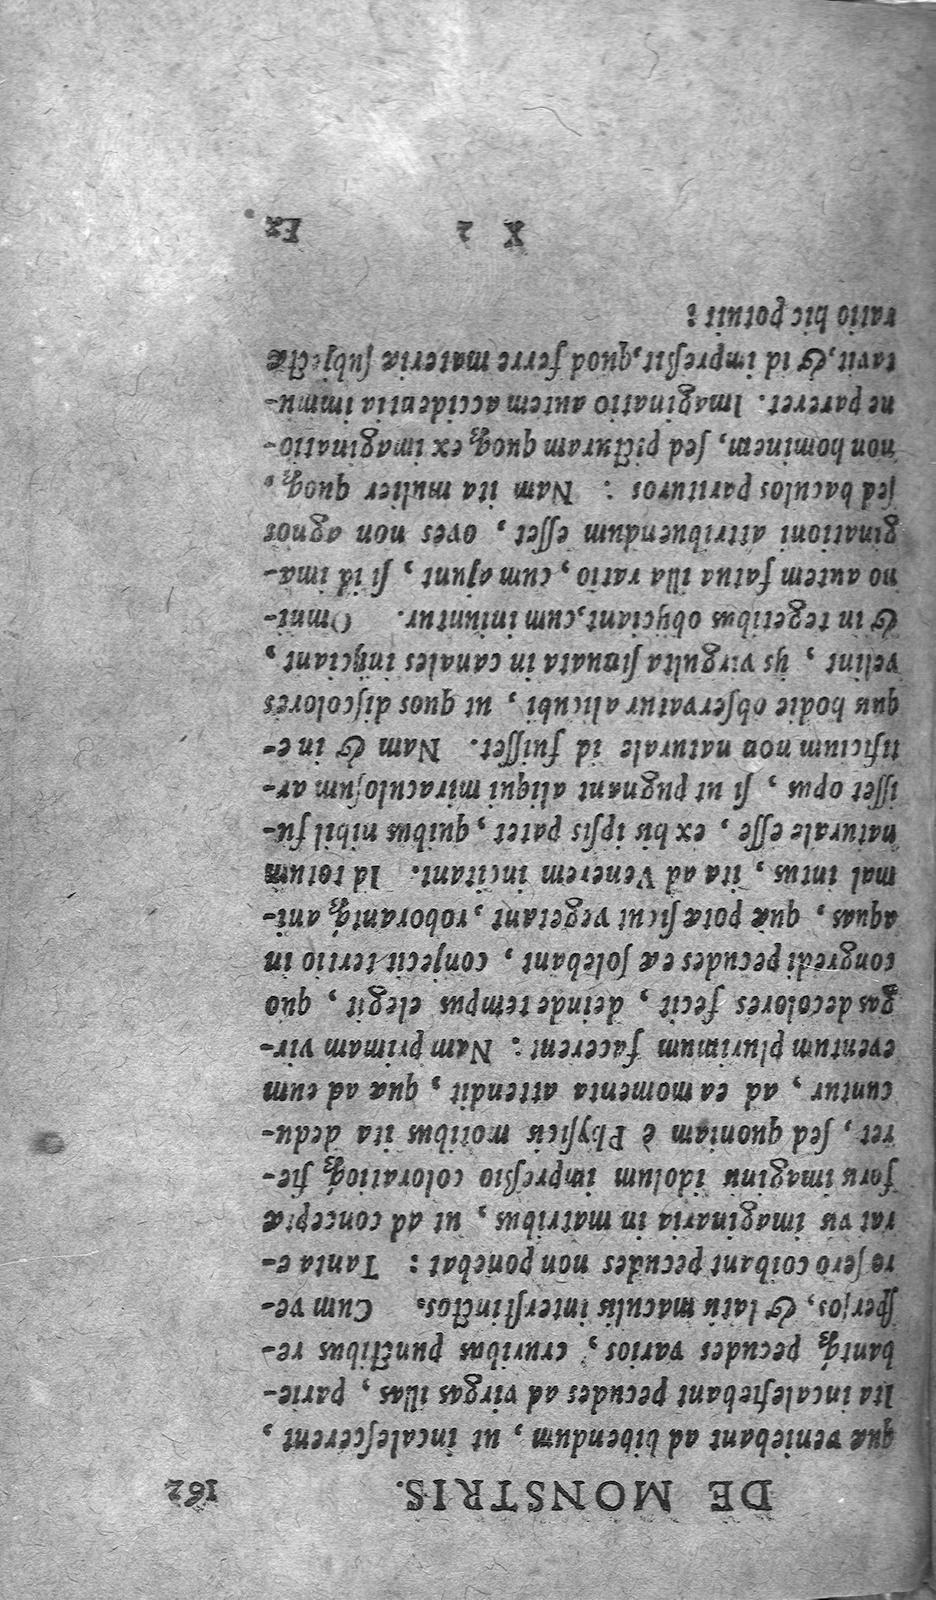 DE MONSTRIS. 162
quæ veniebant ad bibendum, ut incalescerent,
Ita incalesiebant pecudes ad virgas illas, parie-
bantq́; pecudes varios, cruribus punctibus re-
sperſos, & latis maculis interſtinctos. Cum ve-
ro ſero coibant pecudes non ponebat: Tanta e-
rat vis imaginaria in matribus, ut ad conceptæ
foris imaginis idolum impreßio coloratioq́; fie-
ret, ſed quoniam è Phyſicis motibus ita dedu-
cuntur, ad ea momenta attendit, quæ ad eum
eventum plurimum facerent: Nam primam vir-
gas decolores fecit, deinde tempus elegit, quo
congredi pecudes eæ ſolebant, conjecit tertio in
aquas, quæ potæ ſicut vegetant, roborantq́; ani-
mal intus, ita ad Venerem incitant. Id totum
naturale eſſe, ex his ipſis patet, quibus nihil fu-
iſſet opus, ſi ut pugnant aliqui miraculoſum ar-
tificium non naturale id fuiſſet. Nam & in e-
quis hodie obſervatur alicubi, ut quos diſcolores
velint, ijs virgulta ſinuata in canales injiciant,
& in tegetibus objiciant, cum iniuntur. Omni-
no autem fatua illa ratio, cum ajunt, ſi id ima-
ginationi attribuendum eſſet, oves non agnos
ſed baculos parituros: Nam ita mulier quoq;,
non hominem, ſed picturam quoq; ex imaginatio-
ne pareret. Imaginatio autem accidentia immu-
tavit, & id impreßit, quod ferre materiæ ſubjectæ
ratio hic potuit:
X 2 Ex